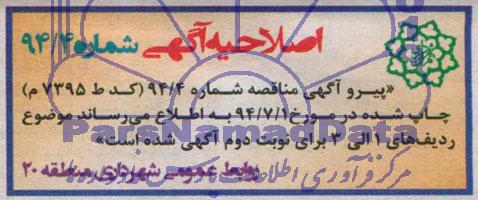 اصلاحیه آگهی شماره ۹۴/۴
«پیرو آگهی مناقصه شماره ۹۴/۴ (کد ط ۷۳۹۵ م)
چاپ شده در مورخ ۹۴/۷/۱ به اطلاع می‌رساند موضوع
ردیف‌های ۱ الی ۳ برای نوبت دوم آگهی شده است»
روابط عمومی شهرداری منطقه ۲۰
ParsNamadData
مرکز فرآوری اطلاعات